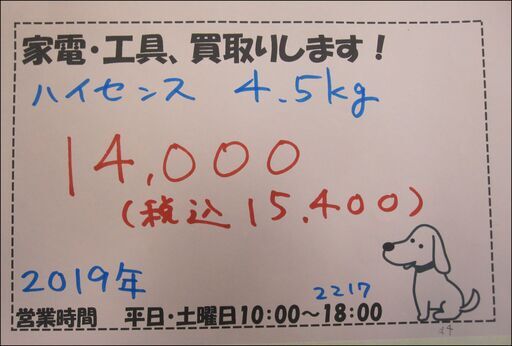 家電・工具、買取りします!
ハイセンス 4.5kg
14,000
(税込 15,400)
2019年
2217
営業時間 平日・土曜日10:00～18:00